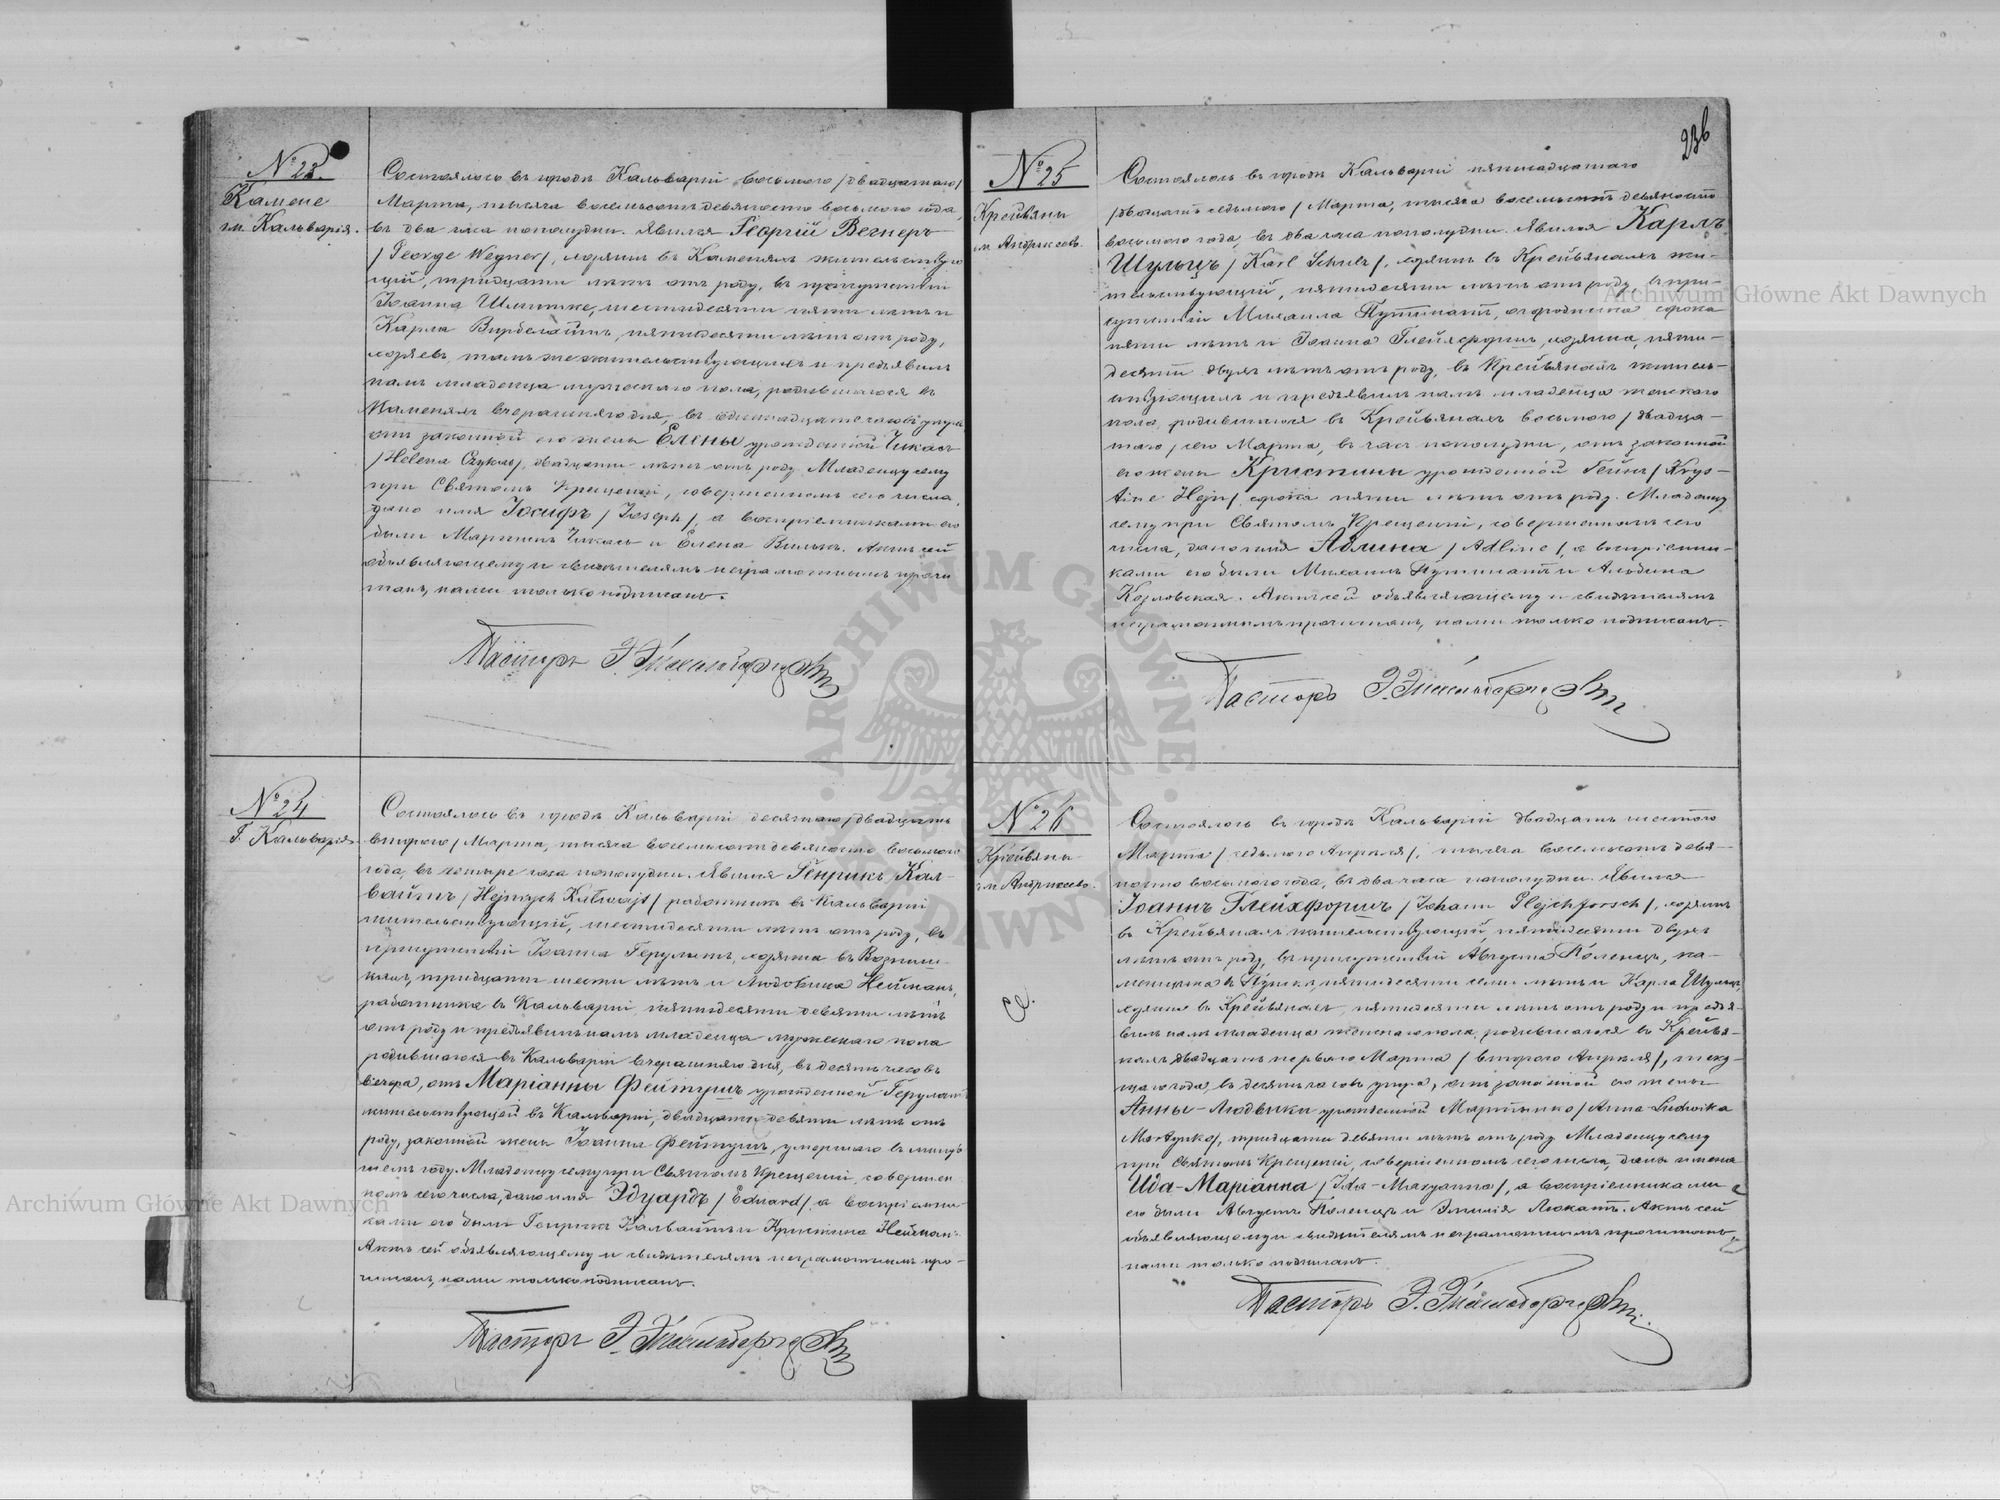 236
№ 23.
Камене
гм. Кальварія.
Состоялось въ городѣ Кальваріи восьмого /двадцатаго/
Марта, тысяча восемьсотъ девяносто восьмого года,
въ два часа пополудни. Явился Георгій Вегнеръ
/George Wegner/, хозяинъ въ Каменяхъ жительствую-
щій, тридцати лѣтъ отъ роду, въ присутствіи
Іоанна Шмитке, шестидесяти пяти лѣтъ и
Карла, пятидесяти лѣтъ отъ роду,
хозяевъ, тамъ же жительствующихъ и предъявилъ
намъ младенца мужескаго пола, родившагося въ
Каменяхъ вчерашняго дня, въ одиннадцать часовъ утра
отъ законной его жены Елены урожденной Чикасъ
/Helena Czykas/, двадцати лѣтъ отъ роду. Младенцу сему
при Святомъ Крещеніи, совершенномъ сего числа,
дано имя Іосифъ /Joseph/, а воспріемниками его
были Мартинъ Чикасъ и Елена Вилькъ. Актъ сей
объявляющему и свидѣтелямъ неграмотнымъ прочи-
танъ, нами только подписанъ.
Пасторъ Э.
№ 24
Г. Кальварія.
Состоялось въ городѣ Кальваріи десятаго /двадцать
втораго/ Марта, тысяча восемьсотъ девяносто восьмого
года, въ четыре часа пополудни. Явился Генрикъ Кал-
вайтъ /Hejnrych Kalwajt/ работникъ въ Кальваріи
жительствующій, шестидесяти лѣтъ отъ роду, въ
присутствіи Іоанна Герулатъ, хозяина въ
тридцати шести лѣтъ и Людовика Нейманъ,
работника въ Кальваріи, пятидесяти девяти лѣтъ
отъ роду и предъявилъ намъ младенца мужескаго пола
родившагося въ Кальваріи вчерашняго дня, въ десять часовъ
вечера, отъ Маріанны Фейтушъ урожденной Герулатъ
жительствующей въ Кальваріи, двадцати девяти лѣтъ отъ
роду, законной жены Іоанна Фейтушъ, умершаго въ минув-
шемъ году. Младенцу сему при Святомъ Крещеніи, совершен-
номъ сего числа, дано имя Эдуардъ /Eduard/, а воспріемни-
ками его были Генрикъ Калвайтъ и Кристина Нейманъ.
Актъ сей объявляющему и свидѣтелямъ неграмотнымъ про-
читанъ, нами только подписанъ.
Пасторъ Э.
№ 25
Крейвяны
гм. Андржеево.
Состоялось въ городѣ Кальваріи пятнадцатаго
/двадцать седьмого/ Марта, тысяча восемьсотъ девяносто
восьмого года, въ два часа пополудни. Явился Карлъ
Шульцъ /Karl Schulz/, хозяинъ въ Крейвянахъ жи-
тельствующій, пятидесяти лѣтъ отъ роду, въ при-
сутствіи Михаила Путинатъ, огородника сорока
пяти лѣтъ и Іоанна Глейхфоршъ, хозяина, пяти-
десяти двухъ лѣтъ отъ роду, въ Крейвянахъ житель-
ствующихъ и предъявилъ намъ младенца женскаго
пола, родившагося въ Крейвянахъ восьмого /двадца-
таго/ сего Марта, въ часъ пополудни, отъ законной
его жены Кристины урожденной Гейнъ /Krys-
tine Hejn/, сорока пяти лѣтъ отъ роду. Младенцу
сему при Святомъ Крещеніи, совершенномъ сего
числа, дано имя Адлина /Adline/, а воспріемни-
ками его были Михаилъ Путинатъ и Альбина
Козловская. Актъ сей объявляющему и свидѣтелямъ
неграмотнымъ прочитанъ, нами только подписанъ.
Пасторъ Э.
№ 26
Крейвяны
гм. Андржеево.
Состоялось въ городѣ Кальваріи двадцать шестого
Марта /седьмого Апрѣля/, тысяча восемьсотъ девя-
носто восьмого года, въ два часа пополудни. Явился
Іоаннъ Глейхфоршъ /Johann Glejchforsch/, хозяинъ
въ Крейвянахъ жительствующій, пятидесяти двухъ
лѣтъ отъ роду, въ присутствіи Августа Поленцъ, ка-
менщика въ, пятидесяти семи лѣтъ и Карла Шульцъ,
хозяина въ Крейвянахъ, пятидесяти лѣтъ отъ роду и предъя-
вилъ намъ младенца женскаго пола, родившагося въ Крейвя-
нахъ двадцать перваго Марта /второго Апрѣля/, теку-
щаго года, въ десять часовъ утра, отъ законной его жены
Анны-Людвики урожденной Мартынко /Anna-Ludwika
Martynko/, тридцати девяти лѣтъ отъ роду. Младенцу сему
при Святомъ Крещеніи, совершенномъ сего числа, даны имена
Ида-Маріанна /Ida-Maryanna/, а воспріемниками
его были Августъ Поленцъ и Эмилія Люкатъ. Актъ сей
объявляющему и свидѣтелямъ неграмотнымъ прочитанъ,
нами только подписанъ.
Пасторъ Э.
Archiwum Główne Akt Dawnych
Archiwum Główne Akt Dawnych
ARCHIWUM GŁÓWNE AKT DAWNYCH